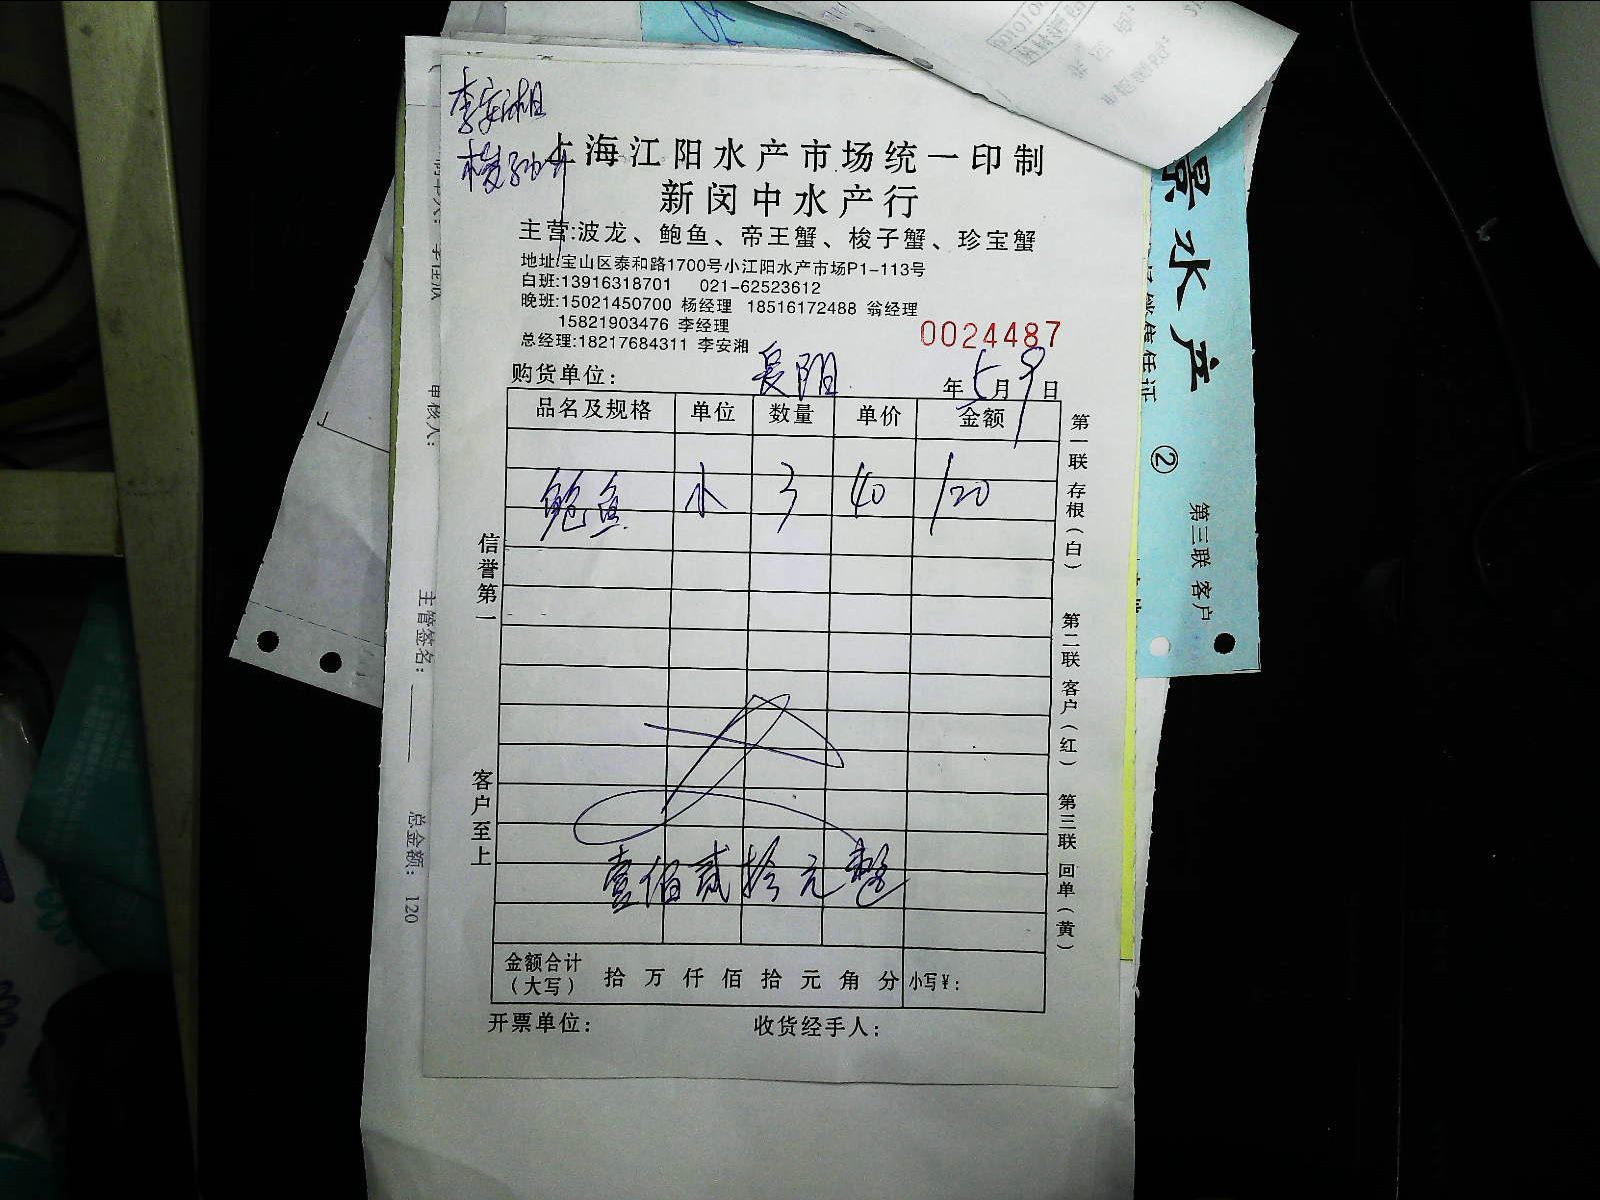 李安湘
上海江阳水产市场统一印制
新闵中水产行
主营:波龙、鲍鱼、帝王蟹、梭子蟹、珍宝蟹
地址:宝山区泰和路1700号小江阳水产市场P1-113号
白班:13916318701 021-62523612
晚班:15021450700 杨经理 18516172488 翁经理
15821903476 李经理
总经理:18217684311 李安湘
0024487
购货单位: 年5月9日
品名及规格 单位 数量 单价 金额
鲍鱼 小 3 40 120
壹佰贰拾元整
金额合计(大写) 拾 万 仟 佰 拾 元 角 分 小写¥:
开票单位: 收货经手人:
信誉第一
客户至上
第一联 存根(白) 第二联 客户(红) 第三联 回单(黄)
审核人:
主管签名:
总金额: 120
景水产
②
第三联 客户